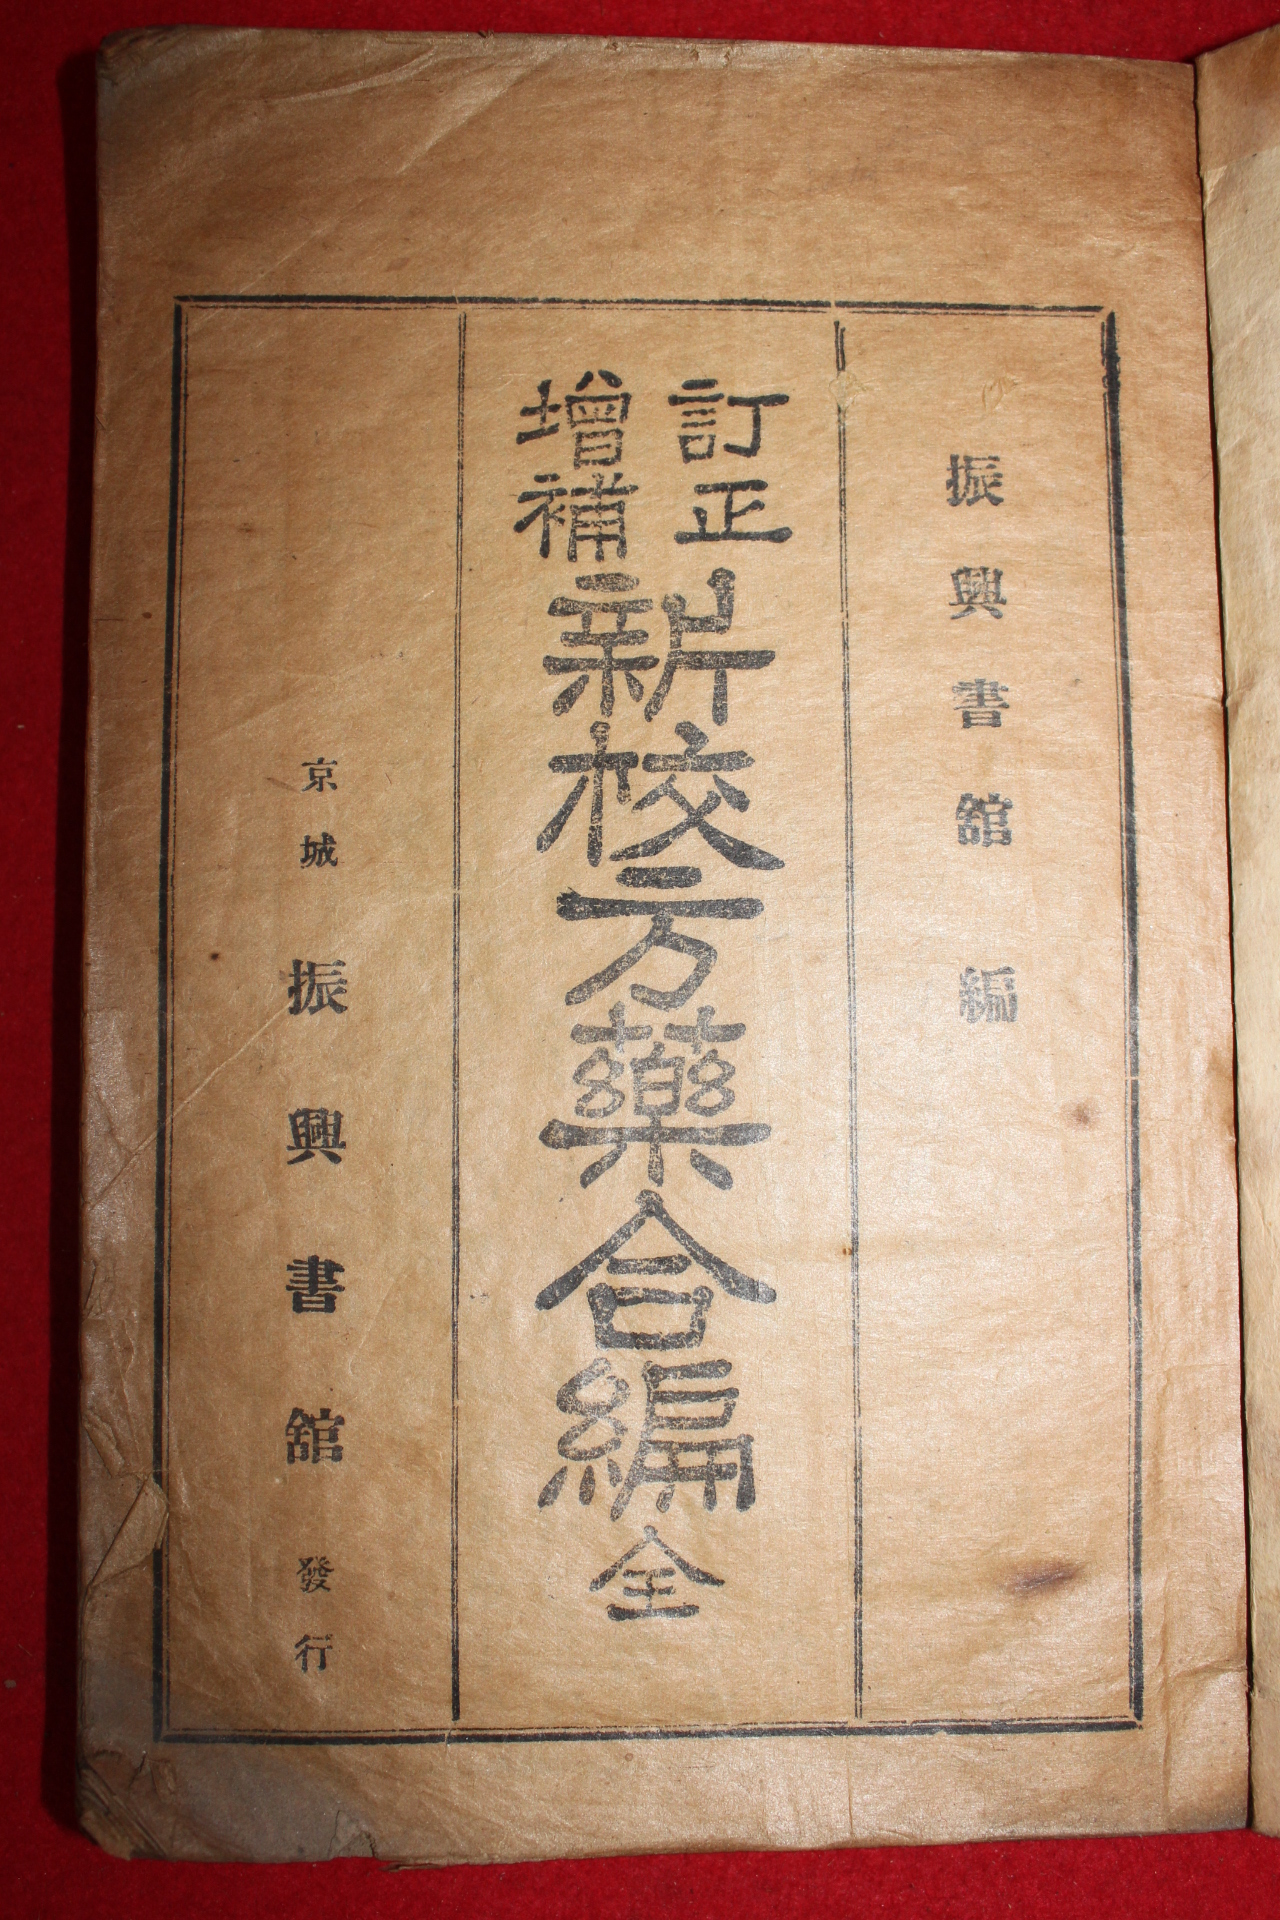 振興書館編
訂正
增補
新校方藥合編全
京城 振興書館 發行